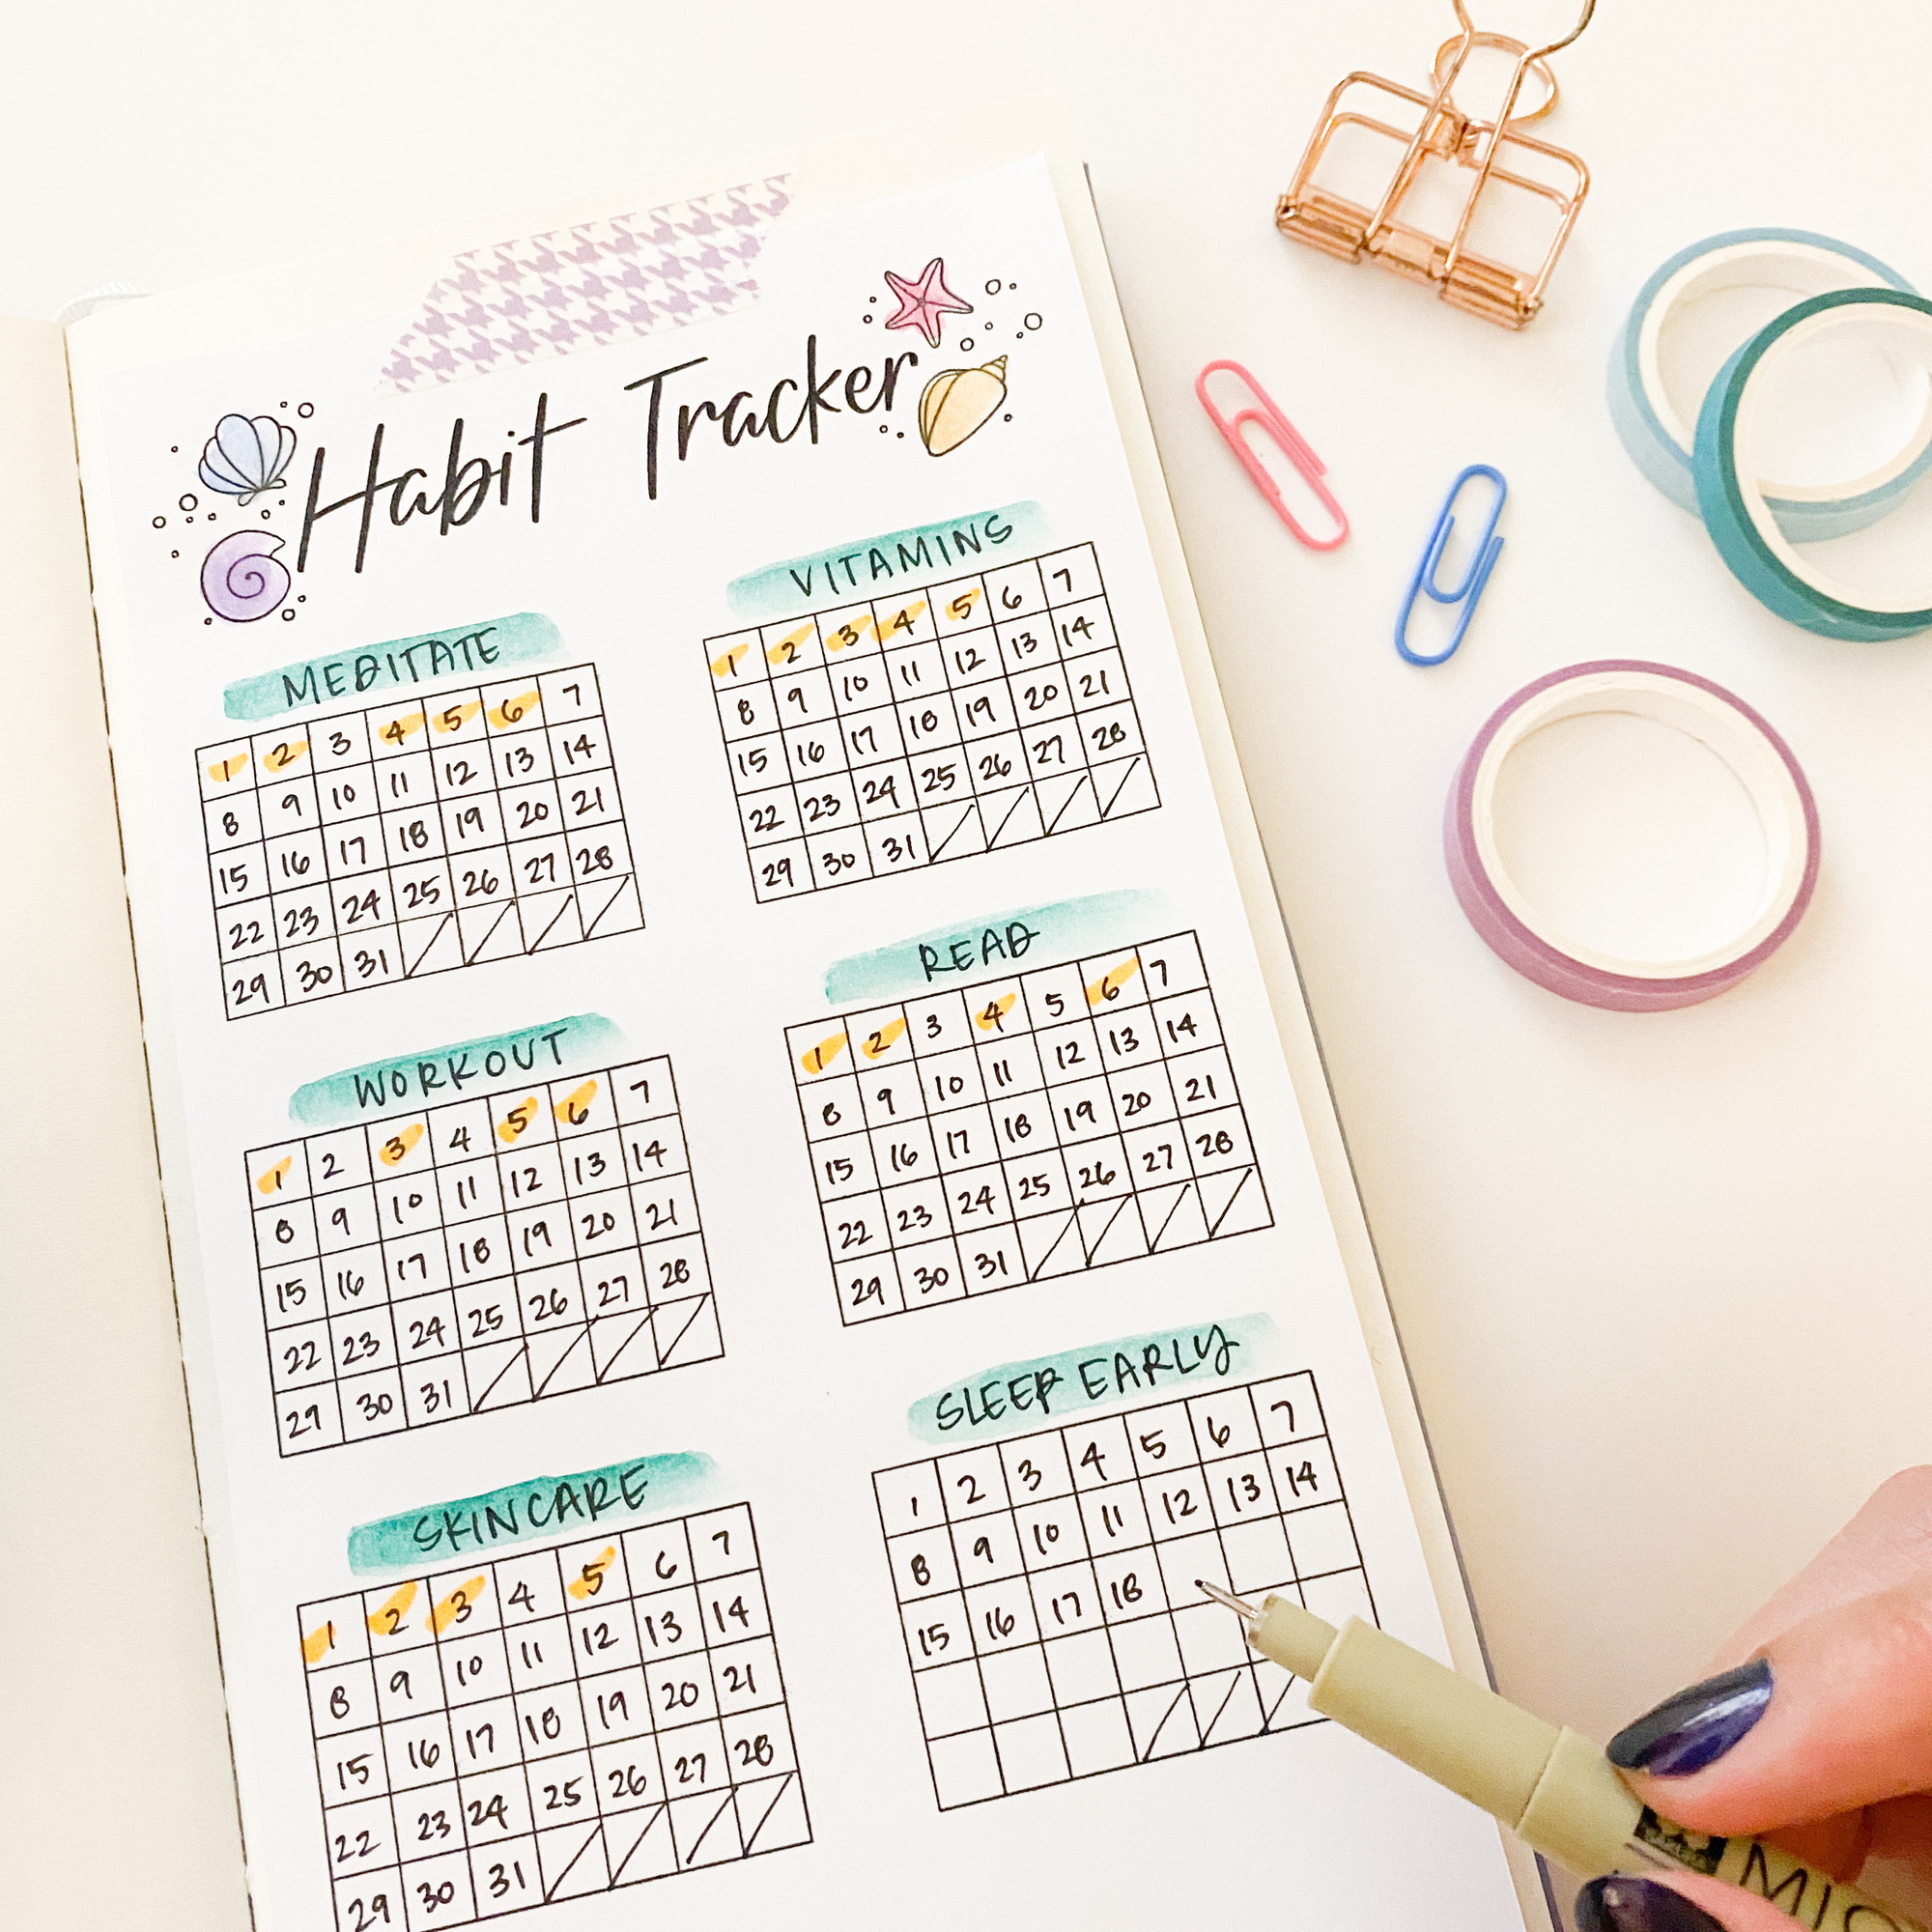 Habit Tracker
MEDITATE
1 2 3 4 5 6 7
8 9 10 11 12 13 14
15 16 17 18 19 20 21
22 23 24 25 26 27 28
29 30 31
VITAMINS
1 2 3 4 5 6 7
8 9 10 11 12 13 14
15 16 17 18 19 20 21
22 23 24 25 26 27 28
29 30 31
WORKOUT
1 2 3 4 5 6 7
8 9 10 11 12 13 14
15 16 17 18 19 20 21
22 23 24 25 26 27 28
29 30 31
READ
1 2 3 4 5 6 7
8 9 10 11 12 13 14
15 16 17 18 19 20 21
22 23 24 25 26 27 28
29 30 31
SKINCARE
1 2 3 4 5 6 7
8 9 10 11 12 13 14
15 16 17 18 19 20 21
22 23 24 25 26 27 28
29 30 31
SLEEP EARLY
1 2 3 4 5 6 7
8 9 10 11 12 13 14
15 16 17 18